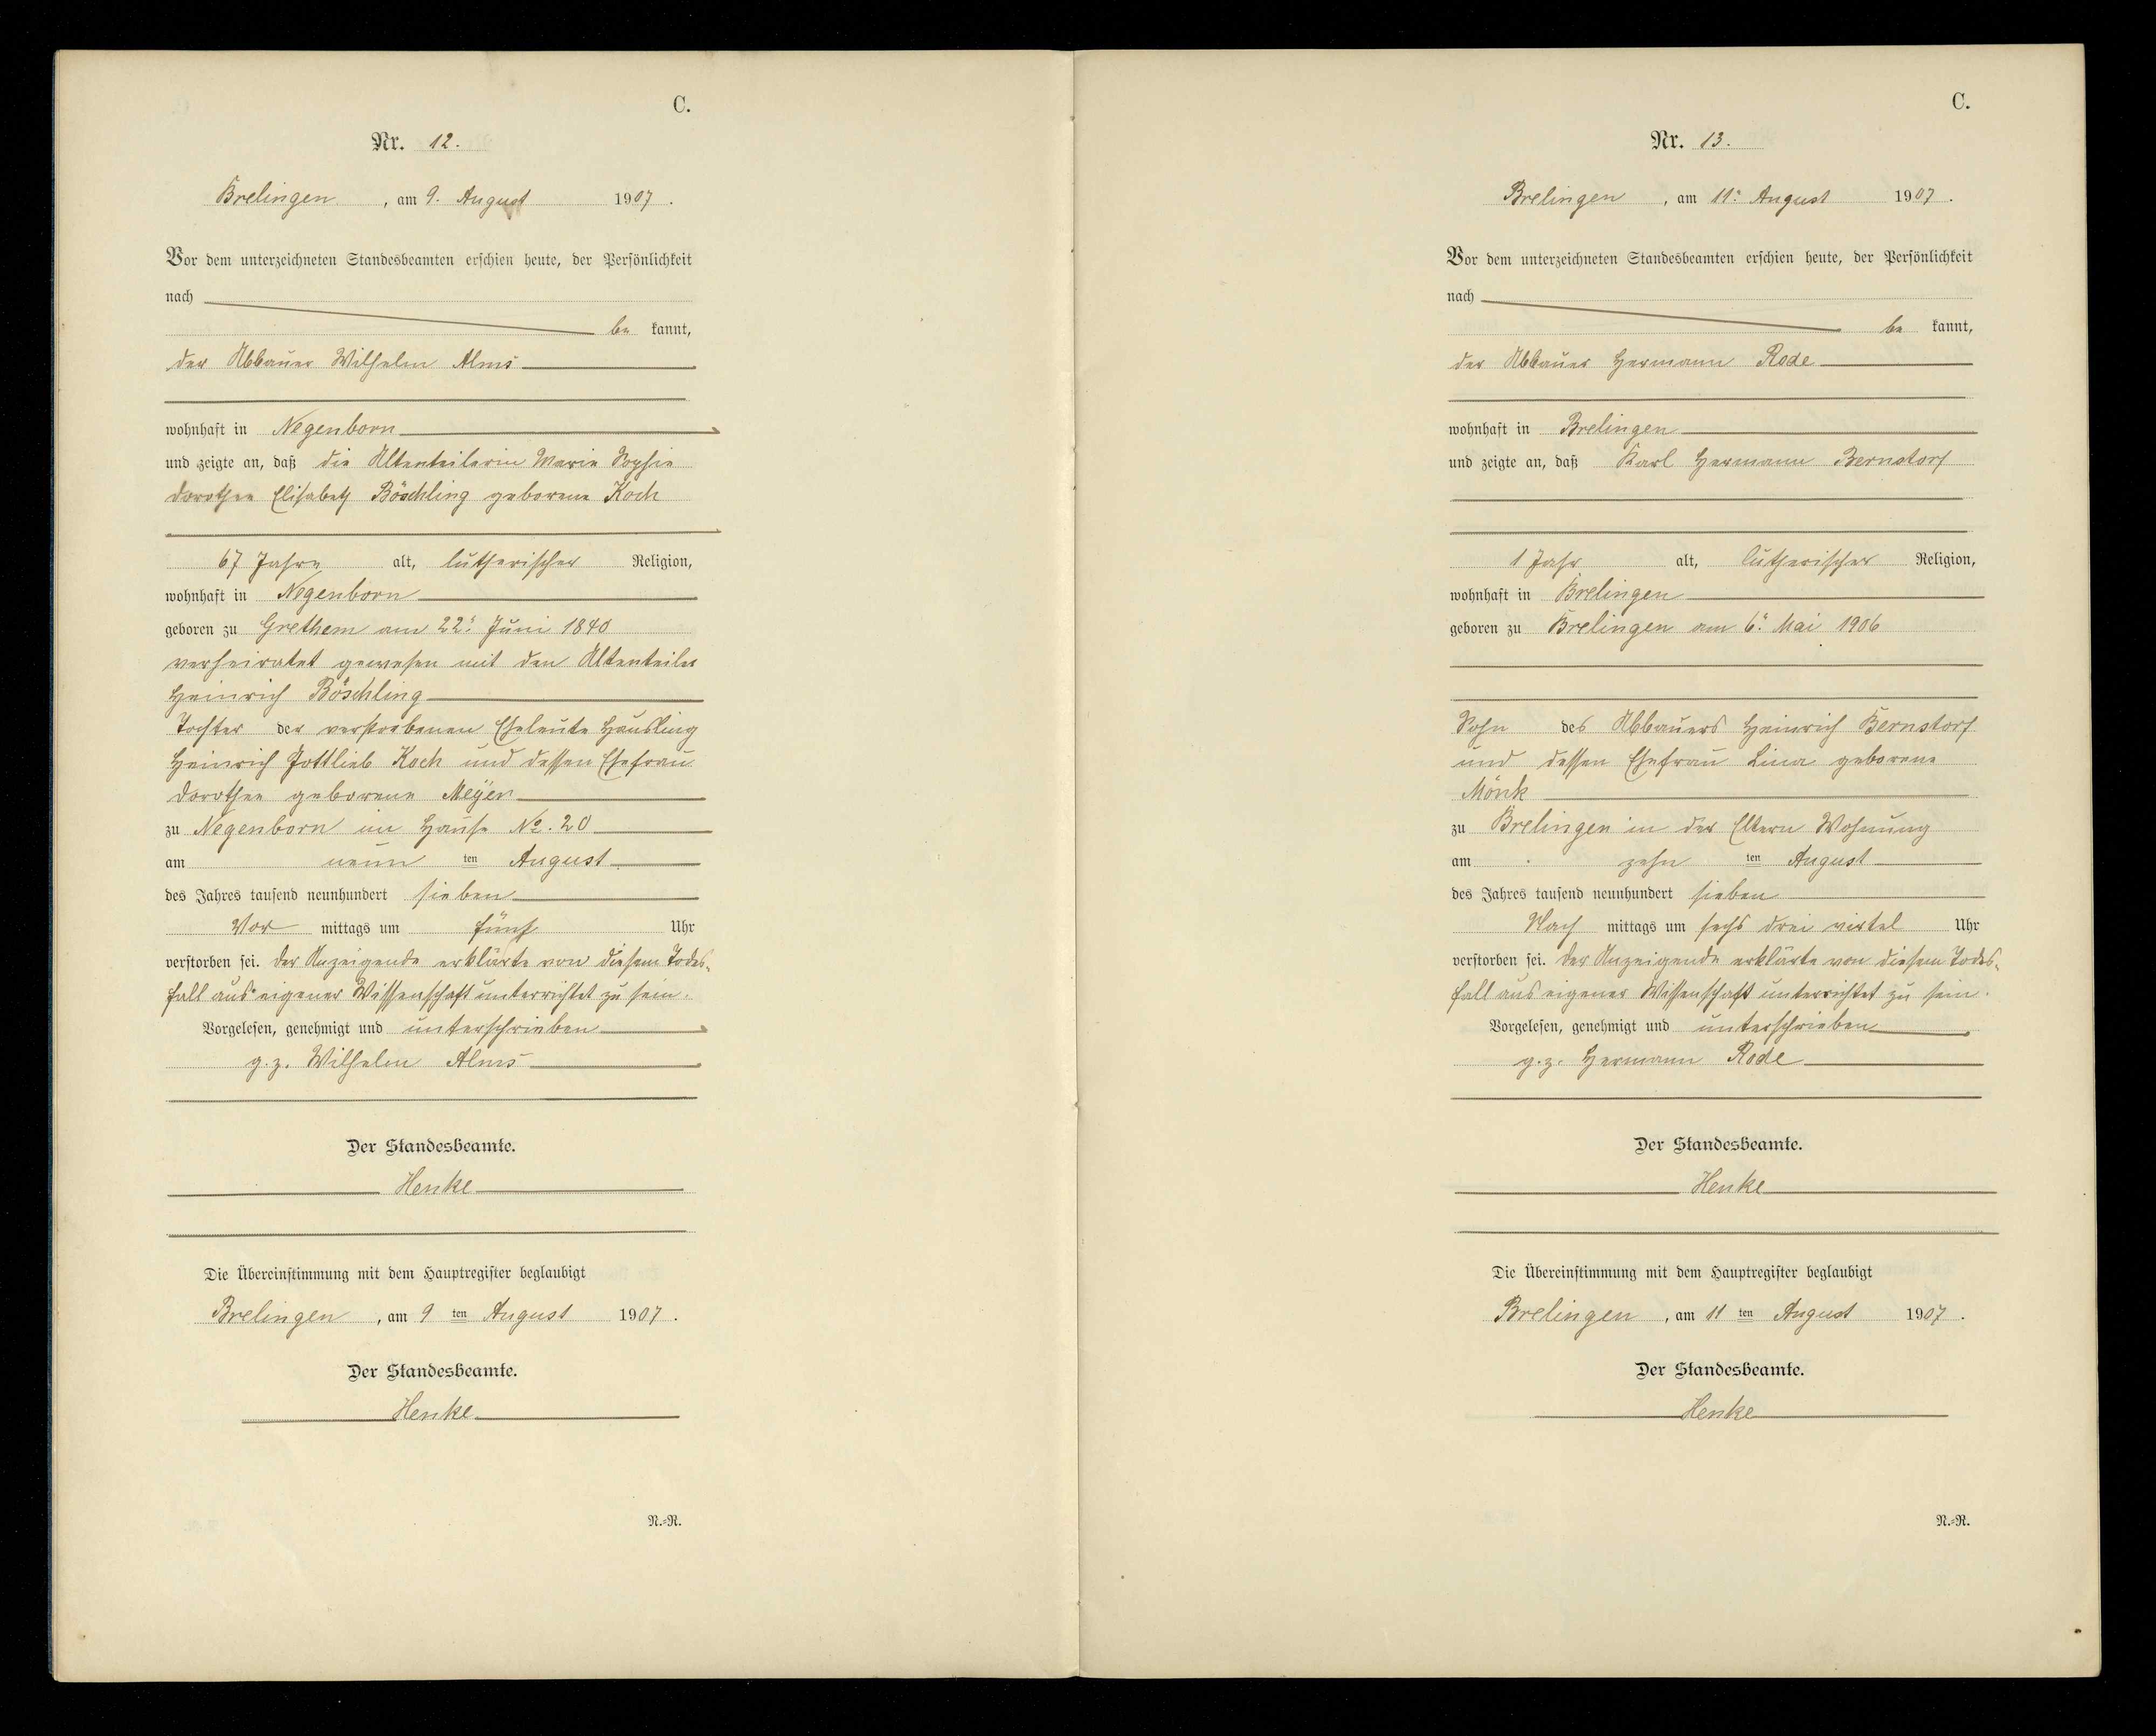 C.
Nr. 12.
Brelingen, am 9. August 1907.
Vor dem unterzeichneten Standesbeamten erschien heute, der Persönlichkeit
nach
be kannt,
der Abbauer Wilhelm Alms
wohnhaft in Negenborn
und zeigte an, daß die Altenteilerin Marie Sophie
Dorothee Elisabeth Böschling geborene Koch
67 Jahre alt, lutherischer Religion,
wohnhaft in Negenborn
geboren zu Grethem am 22ᵗ Juni 1840
verheiratet gewesen mit den Altenteiler
Heinrich Böschling
Tochter der verstorbenen Eheleute Häusling
Heinrich Gottlieb Koch und dessen Ehefrau
Dorothee geborene Meÿer
zu Negenborn im Hause No. 20
am neun ten August
des Jahres tausend neunhundert sieben
Vor mittags um fünf Uhr
verstorben sei. Der Anzeigende erklärte von diesem Todes-
fall aus eigener Wissenschaft unterrichtet zu sein.
Vorgelesen, genehmigt und unterschrieben
g. z. Wilhelm Alms
Der Standesbeamte.
Henke
Die Übereinstimmung mit dem Hauptregister beglaubigt
Brelingen, am 9 ten August 1907.
Der Standesbeamte.
Henke
N.-R.
C.
Nr. 13.
Brelingen, am 11. August 1907.
Vor dem unterzeichneten Standesbeamten erschien heute, der Persönlichkeit
nach
be kannt,
der Abbauer Hermann Rode
wohnhaft in Brelingen
und zeigte an, daß Karl Hermann Bernstorf
1 Jahr alt, lutherischer Religion,
wohnhaft in Brelingen
geboren zu Brelingen am 6ᵗ Mai 1906
Sohn des Abbauers Heinrich Bernstorf
und dessen Ehefrau Lina geborene
Mönk
zu Brelingen in der Eltern Wohnung
am zehn ten August
des Jahres tausend neunhundert sieben
Nach mittags um sechs drei virtel Uhr
verstorben sei. Der Anzeigende erklärte von diesem Todes-
fall aus eigener Wissenschaft unterrichtet zu sein.
Vorgelesen, genehmigt und unterschrieben
g. z. Hermann Rode
Der Standesbeamte.
Henke
Die Übereinstimmung mit dem Hauptregister beglaubigt
Brelingen, am 11 ten August 1907.
Der Standesbeamte.
Henke
N.-R.